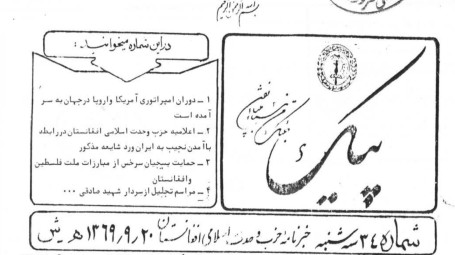 بسم الله الرحمن الرحیم
در این شماره میخوانید:
۱ ــ دوران امپراتوری آمریکا و اروپا در جهان به سر
آمده است
۲ ــ اعلامیه حزب وحدت اسلامی افغانستان در رابطه
با آمدن نجیب به ایران و رد شایعه مذکور
۳ ــ حمایت بسیجیان سرخس از مبارزات ملت فلسطین
و افغانستان
۴ ــ مراسم تجلیل از سردار شهید صادقی ...
پیک
شماره ۳۴ سه شنبه خبرنامه حزب وحدت اسلامی افغانستان ۱۳۶۹٫۹٫۲۰ هـ ش